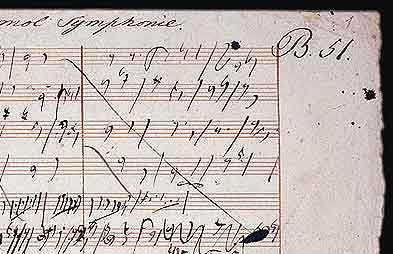 moll Symphonie.
B. 51.
1